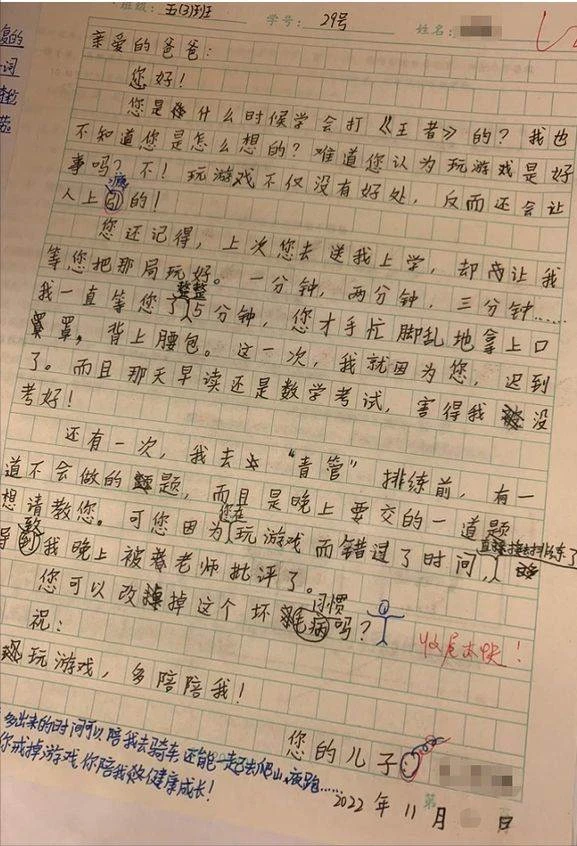 班级：五(3)班 学号：29号 姓名：
亲爱的爸爸：
您好！
您是什么时候学会打《王者》的？我也
不知道您是怎么想的？难道您认为玩游戏是好
事吗？不！玩游戏不仅没有好处，反而还会让
人上瘾的！
您还记得，上次您去送我上学，却离让我
等您把那局玩好。一分钟，两分钟，三分钟……
我一直等您了整整5分钟，您才手忙脚乱地拿上口
罩，背上腰包。这一次，我就因为您，迟到
了。而且那天早读还是数学考试，害得我没
考好！
还有一次，我去“青管”排练前，有一
道不会做的题，而且是晚上要交的一道题
想请教您。可您因为您在玩游戏而错过了时间，
我晚上被老师批评了。
您可以改掉这个坏习惯吗？
收尾太快！
祝：
玩游戏，多陪陪我！
多出来的时间可以陪我去骑车，还能一起去爬山、夜跑……
你戒掉游戏，你陪我健康成长！
您的儿子
2022年11月 日